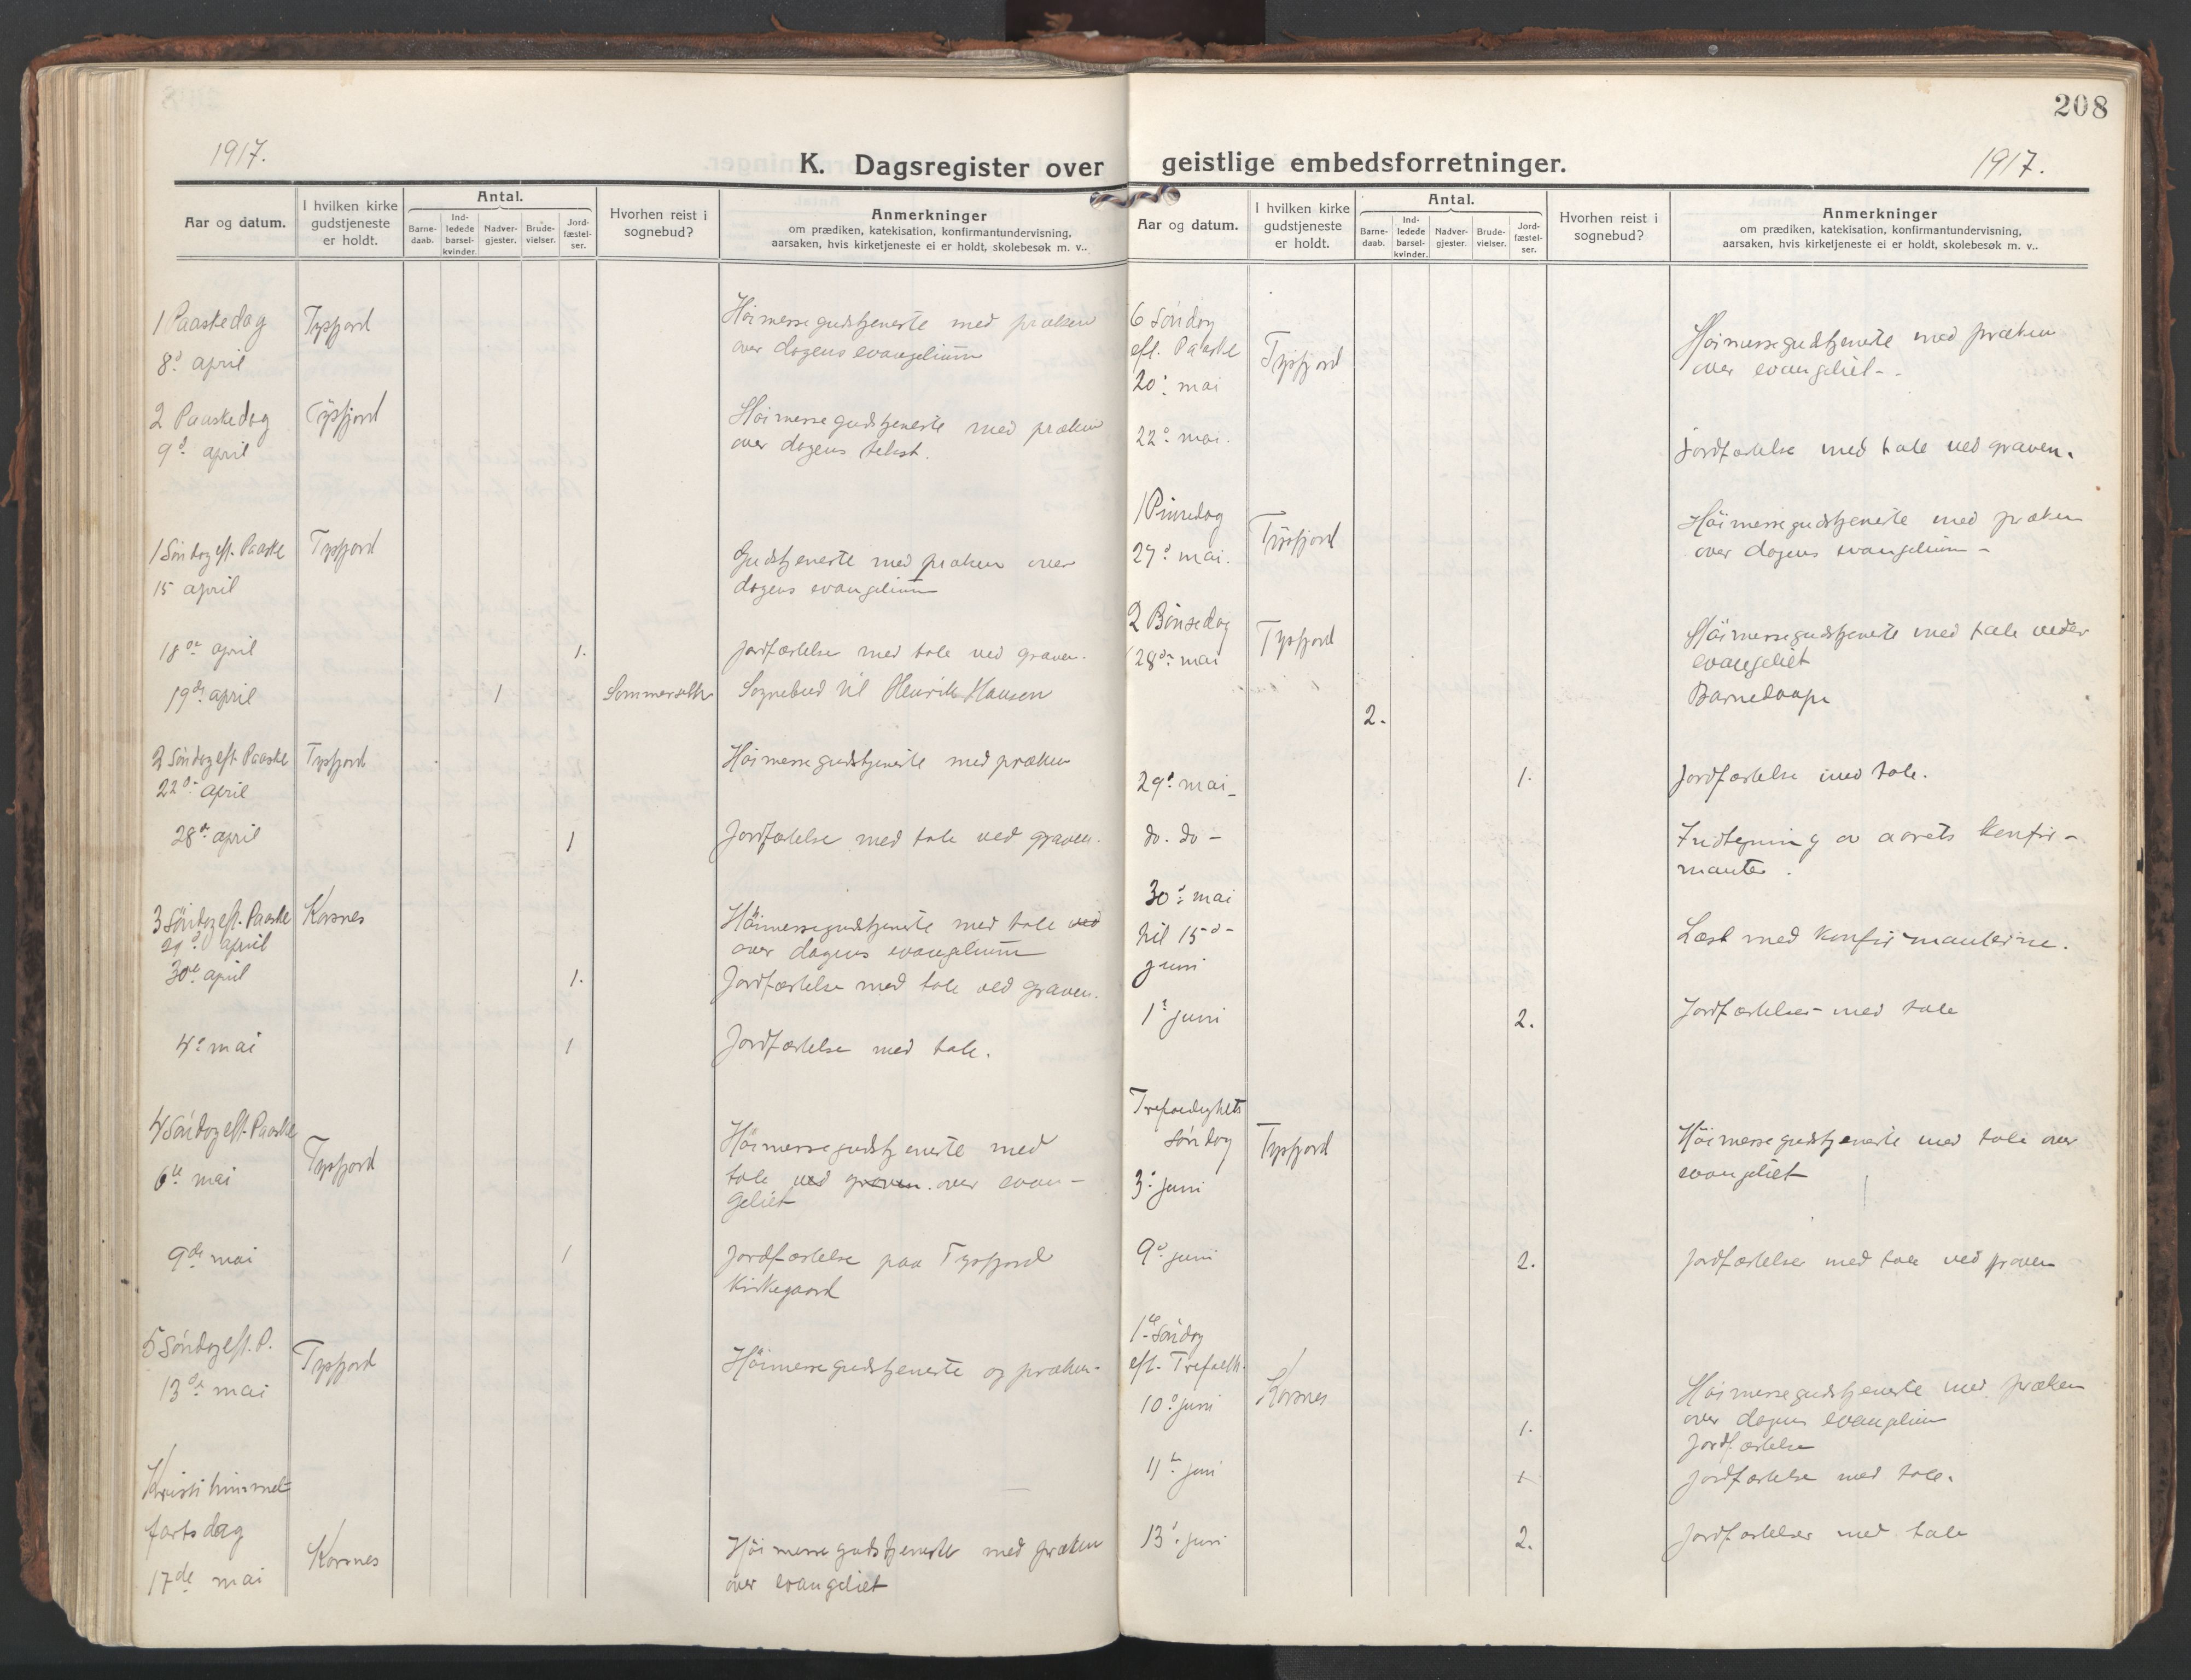 208
1917.
K. Dagsregister over
Aar og datum.
I hvilken kirke gudstjeneste er holdt.
Antal.
Barne-daab.
Ind-ledede barsel-kvinder.
Nadver-gjester.
Brude-vielser.
Jord-fæstel-ser.
Hvorhen reist i sognebud?
Anmerkninger
om prædiken, katekisation, konfirmantundervisning,
aarsaken, hvis kirketjeneste ei er holdt, skolebesøk m. v..
1 Paaskedag Tysfjord Høimessegudstjeneste med præken
8d april over dagens evangelium
2 Paaskedag Tysfjord Høimessegudstjeneste med præken
9d april over dagens tekst.
1 Søndag eft. Paaske Tysfjord Gudstjeneste med præken over
15 april dagens evangelium
18de april 1. Jordfæstelse med tale ved graven.
19de april 1 Sognebud til Henrik Hansen
2 Søndag eft. Paaske Tysfjord Høimessegudstjeneste med præken
22d april
28d april 1 Jordfæstelse med tale ved graven.
3 Søndag eft. Paaske Korsnes Høimessegudstjeneste med tale ved
29d april over dagens evangelium
30te april 1. Jordfæstelse med tale ved graven.
4d mai 1 Jordfæstelse med tale.
4 Søndag eft. Paaske Tysfjord Høimessegudstjeneste med
6te mai tale ved graven. over evan-
geliet
9de mai 1 Jordfæstelse paa Tysfjord
kirkegaard
5 Søndag eft. P. Tysfjord Høimessegudstjeneste og præken.
13de mai
Kristi himmel-
fartsdag Korsnes Høimessegudstjeneste med præken
17de mai over evangeliet
geistlige embedsforretninger.
1917.
Aar og datum.
I hvilken kirke gudstjeneste er holdt.
Antal.
Barne-daab.
Ind-ledede barsel-kvinder.
Nadver-gjester.
Brude-vielser.
Jord-fæstel-ser.
Hvorhen reist i sognebud?
Anmerkninger
om prædiken, katekisation, konfirmantundervisning,
aarsaken, hvis kirketjeneste ei er holdt, skolebesøk m. v..
6 Søndag
eft. Paaske Tysfjord Høimessegudstjeneste med præken
20d mai over evangeliet.
22d mai. Jordfæstelse med tale ved graven.
1 Pinsedag Tysfjord Høimessegudstjeneste med præken
27d mai. over dagens evangelium
2 Pinsedag Tysfjord Høimessegudstjeneste med tale
28de mai evangeliet
2. Barnedaap
29d mai 1. Jordfæstelse med tale.
do. do - Indtegning av aarets konfir-
manter.
30d mai
til 15d Læst med konfirmanterne.
juni
1d juni 2. Jordfæstelser med tale
Trefoldighets
søndag Tysfjord Høimessegudstjeneste med tale over
3d juni evangeliet
9d juni 2. Jordfæstelser med tale ved graven
1te Søndag
eft. Trefoldh. Korsnes Høimessegudstjeneste med præken
10d juni over dagens evangelium
1. Jordfæstelse
11te juni 1 Jordfæstelse med tale.
13d juni 2. Jordfæstelser med tale